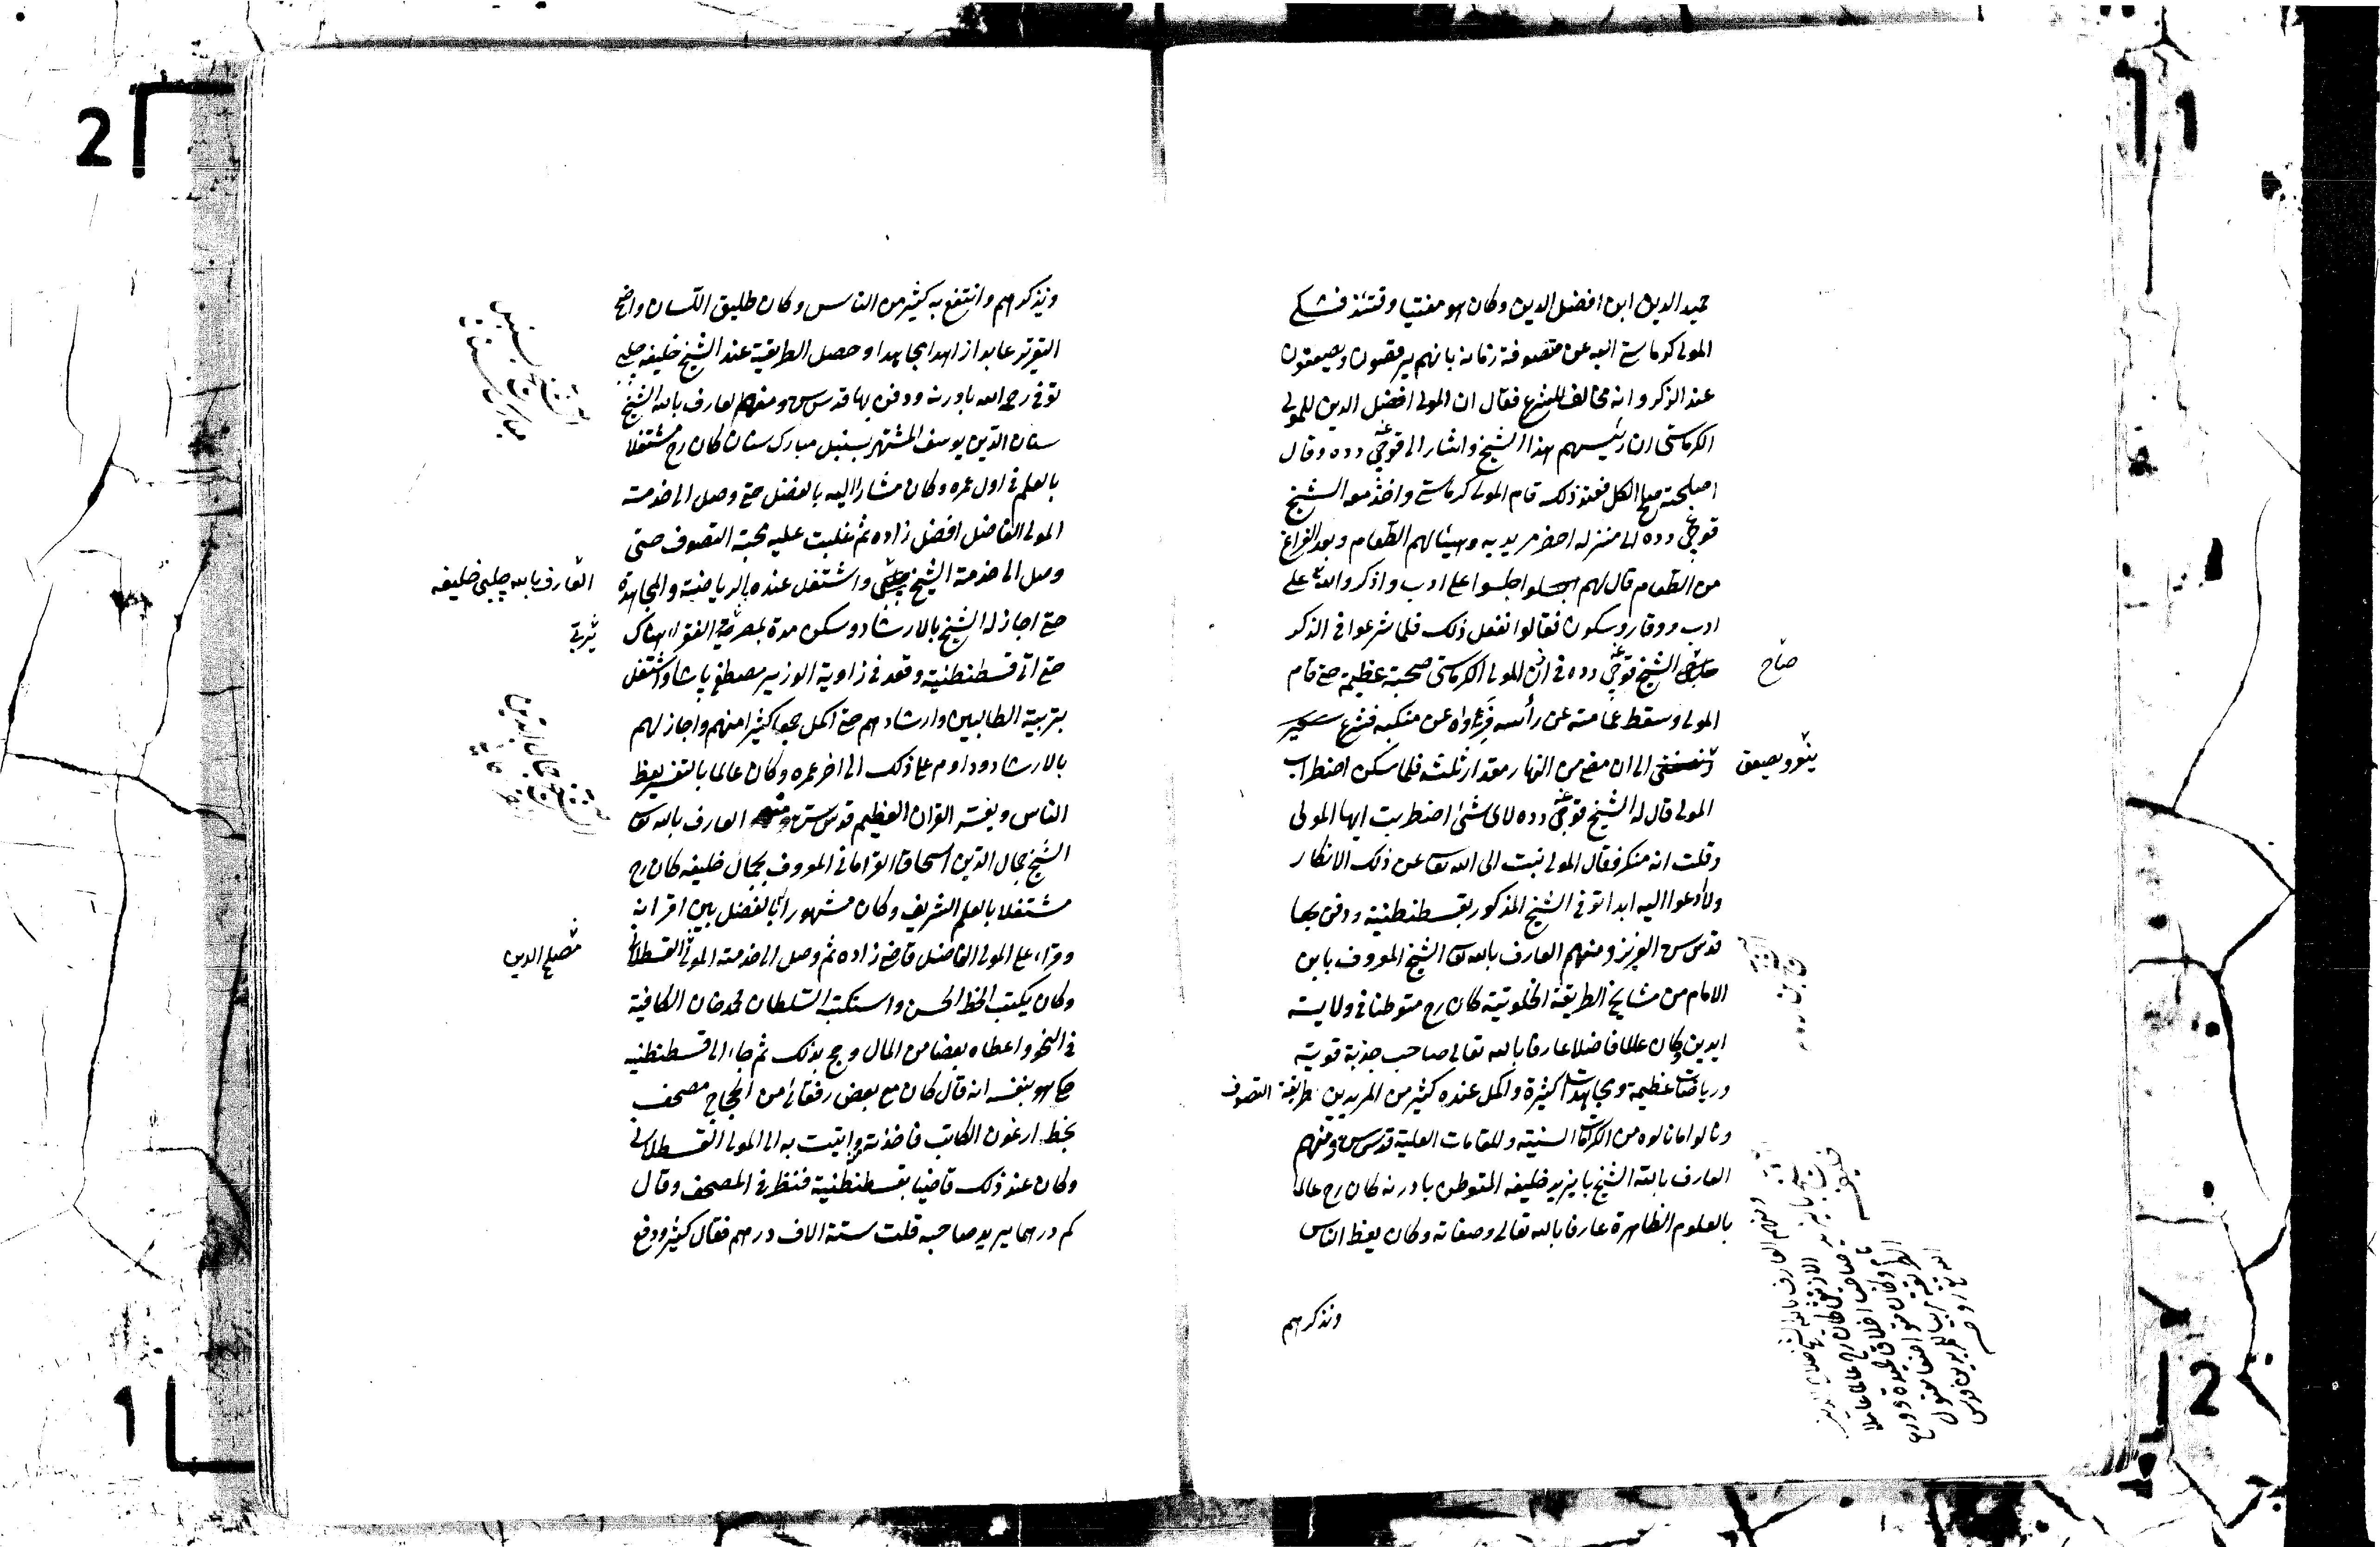 حميد الدين ابن افضل الدين وكان هو مفتيا وقتئذ فشكى
المولى كرماستى اليه عن متصوفة زمانه بانهم يرقصون ويصعقون
عند الذكر وانه مخالف للشرع فقال ان المولى افضل الدين للمولى
الكرماستى ان رئيسهم هذا الشيخ واشار الى قوجى دده وقال
اصلحته صلح الكل فعند ذلك قام المولى كرماستى واخذ معه الشيخ
قوجى دده الى منزله احضر مريديه وهيئا لهم الطعام وبعد الفراغ
من الطعام قال لهم اجلسوا على ادب واذكروا الله على
ادب ووقار وسكون فقالوا نفعل ذلك فلما شرعوا فى الذكر
صاح
الشيخ قوجى دده فى اذن المولى الكرماستى صيحة عظيمة حتى قام
المولى وسقط عمامته عن رأسه ورداؤه عن منكبه فشرع
ينعر ويصعق
الى ان مضى من النهار مقدار ثلث فلما سكن اضطراب
المولى قال له الشيخ قوجى دده لاى شئ اضطربت ايها المولى
وقلت انه منكر فقال المولى تبت الى الله تعالى عن ذلك الانكار
ولا ادعوا اليه ابدا توفى الشيخ المذكور بقسطنطنية ودفن بها
قدس سره العزيز ومنهم العارف بالله تعالى الشيخ المعروف بابن
الامام من مشايخ الطريقة الخلوتية كان رح متوطنا فى ولاية
ايدين وكان عالما فاضلا عارفا بالله تعالى صاحب جذبة قوية
ورياضات عظيمة ومجاهدات كثيرة واكمل عنده كثير من المريدين طريقة التصوف
ونالوا ما نالوه من الكرامات السنية والمقامات العلية قدس سره ومنهم
العارف بالله الشيخ بايزيد خليفه المتوطن بادرنه كان رح عالما
بالعلوم الظاهرة عارفا بالله تعالى وصفاته وكان يعظ الناس
ويذكرهم
ومنهم العارف بالله الشيخ صلاح الدين
الازنيقى كان رح عالما عاملا
صاحب اخلاق حميدة وورع
ويذكرهم وانتفع به كثير من الناس وكان طليق اللسان واضح
التقرير عابدا زاهدا مجاهدا وحصل الطريقة عند الشيخ خليفه چلبى
توفى رحمه الله بادرنه ودفن بها قدس سره ومنهم العارف بالله الشيخ
سنان الدين يوسف المشتهر بسنبل مبارك سنان كان رح مشتغلا
بالعلم فى اول عمره وكان مشارا اليه بالفضل حتى وصل الى خدمة
المولى الفاضل افضل زاده ثم غلبت عليه محبة التصوف حتى
وصل الى خدمة الشيخ چلبى واشتغل عنده بالرياضة والمجاهدة
العارف بالله چلبى خليفه
حتى اجاز له الشيخ بالارشاد وسكن مدة بمصر الفقراء هناك
تربى
حتى اتى قسطنطنية وقعد فى زاوية الوزير مصطفى پاشا واشتغل
بتربية الطالبين وارشادهم حتى اكمل جمعا كثيرا منهم واجاز لهم
بالارشاد وداوم على ذلك الى اخر عمره وكان عالما بالتفسير يعظ
الناس ويفسر القران العظيم قدس سره ومنهم العارف بالله تعالى
الشيخ جمال الدين اسحاق القرامانى المعروف بجمال خليفه كان رح
مشتغلا بالعلم الشريف وكان مشهورا بالفضل بين اقرانه
وقراء على المولى الفاضل قاضى زاده ثم وصل الى خدمة المولى القسطلانى
مصلح الدين
وكان يكتب الخط الحسن واستكتبه السلطان محمد خان الكافية
فى النحو واعطاه بعضا من المال وحج بذلك ثم جاء الى قسطنطنيه
حكى هو بنفسه انه قال كان مع بعض رفقائى من الحجاج مصحف
بخط ارغون الكاتب فاخذته واتيت به الى المولى القسطلانى
وكان عند ذلك قاضيا بقسطنطنية فنظر فى المصحف وقال
كم درهما يريد صاحبه قلت ستة الاف درهم فقال كثير ودفع